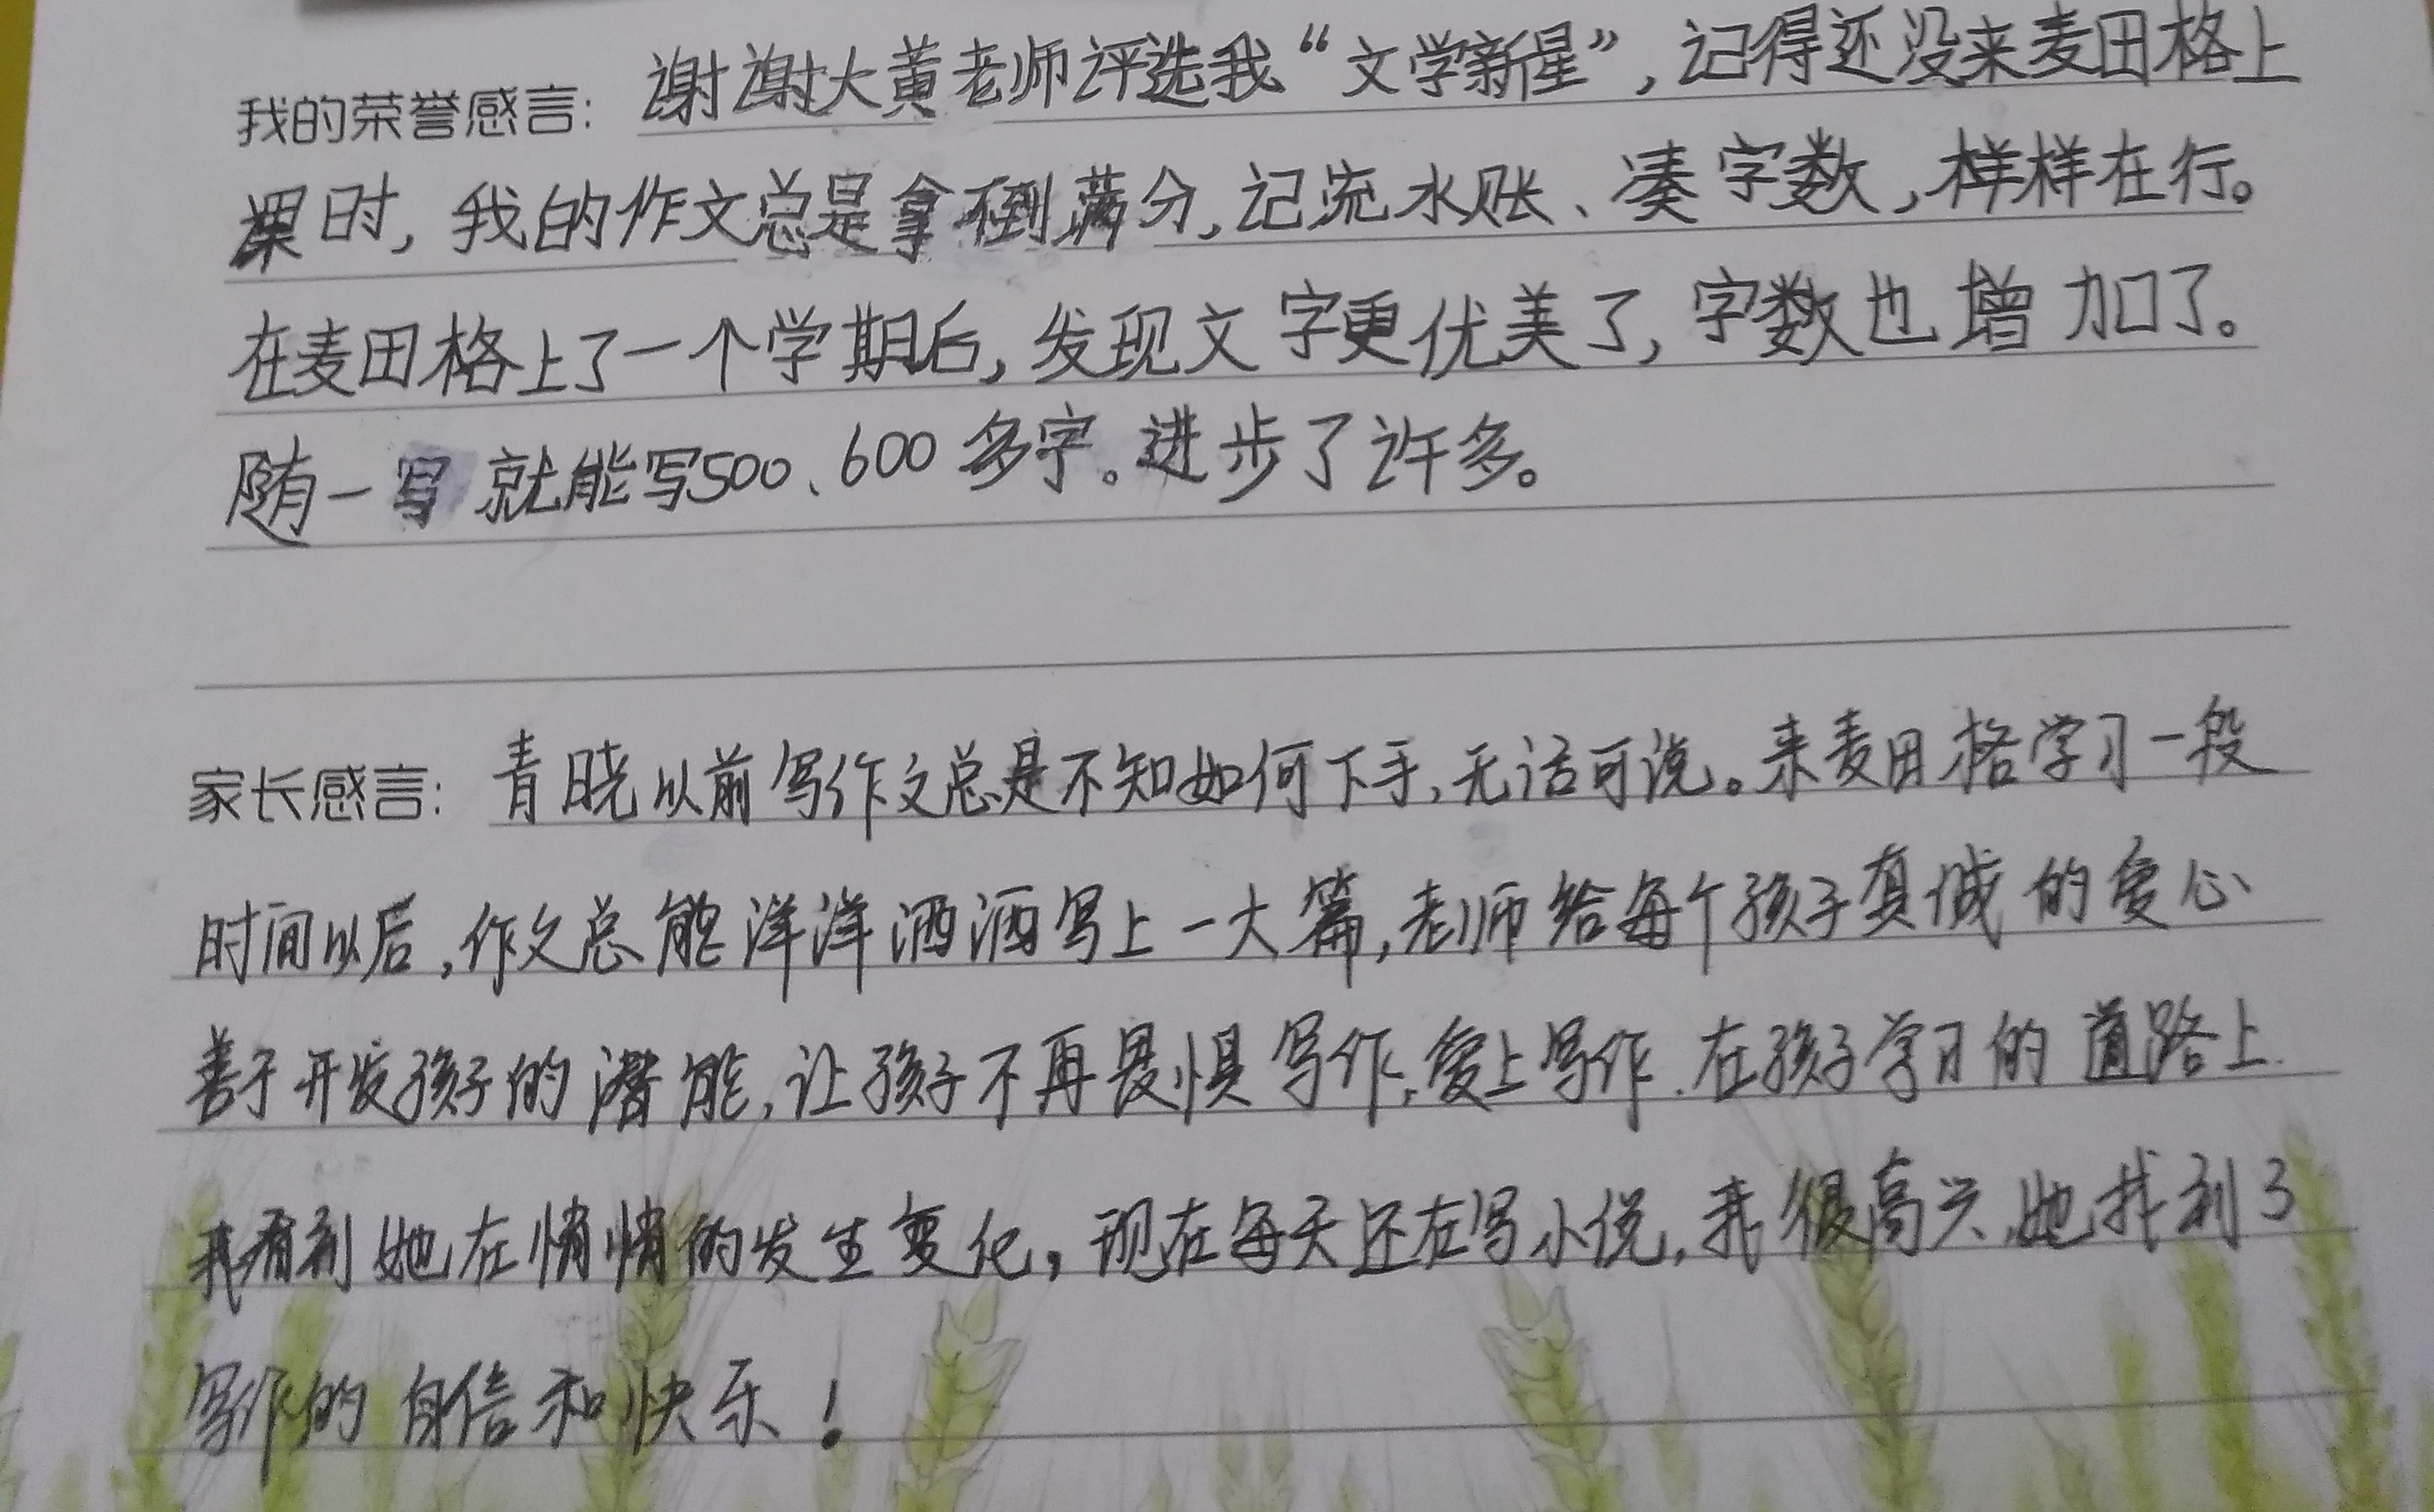 我的荣誉感言：谢谢大黄老师评选我“文学新星”，记得还没来麦田格上
课时，我的作文总是拿不到满分，记流水账、凑字数，样样在行。
在麦田格上了一个学期后，发现文字更优美了，字数也增加了。
随一写就能写500、600多字。进步了许多。
家长感言：青晓以前写作文总是不知如何下手，无话可说。来麦田格学习一段
时间以后，作文总能洋洋洒洒写上一大篇，老师给每个孩子真诚的爱心
善于开发孩子的潜能，让孩子不再畏惧写作，爱上写作．在孩子学习的道路上．
我看到她在悄悄的发生变化，现在每天还在写小说，我很高兴，她找到了
写作的自信和快乐！